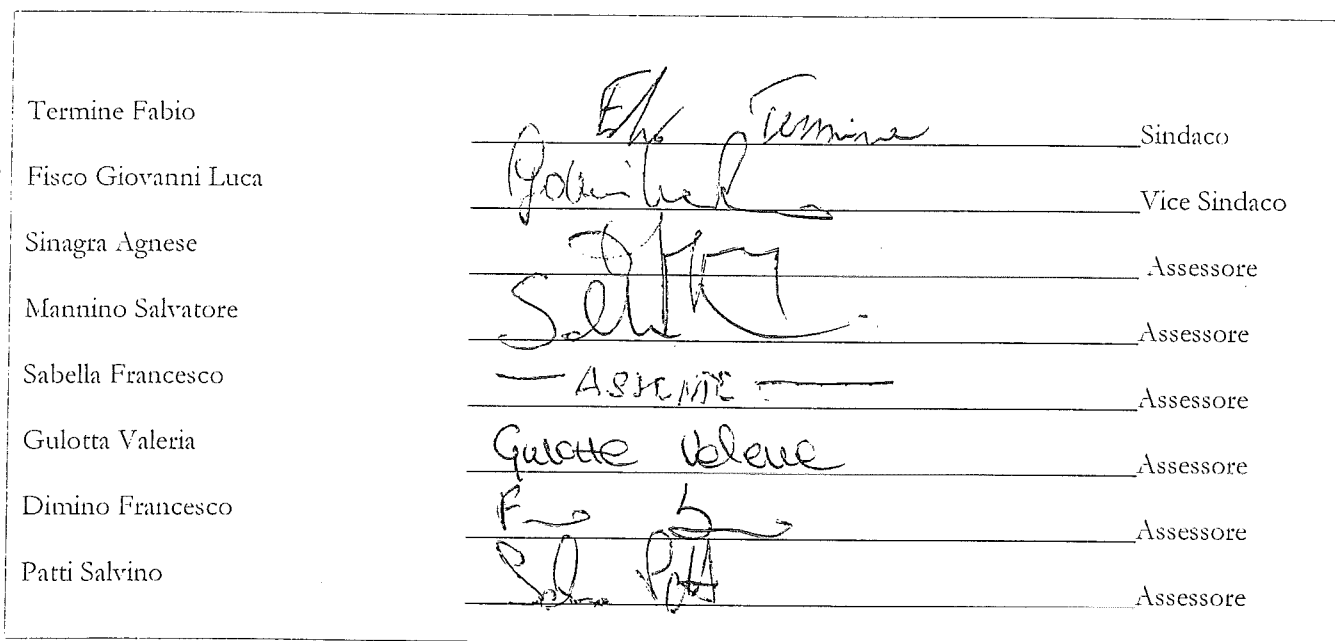 Termine Fabio Termine Sindaco
Fisco Giovanni Luca Vice Sindaco
Sinagra Agnese Assessore
Mannino Salvatore Assessore
Sabella Francesco — ASSENTE — Assessore
Gulotta Valeria Gulotta Valeria Assessore
Dimino Francesco Assessore
Patti Salvino Patti Assessore